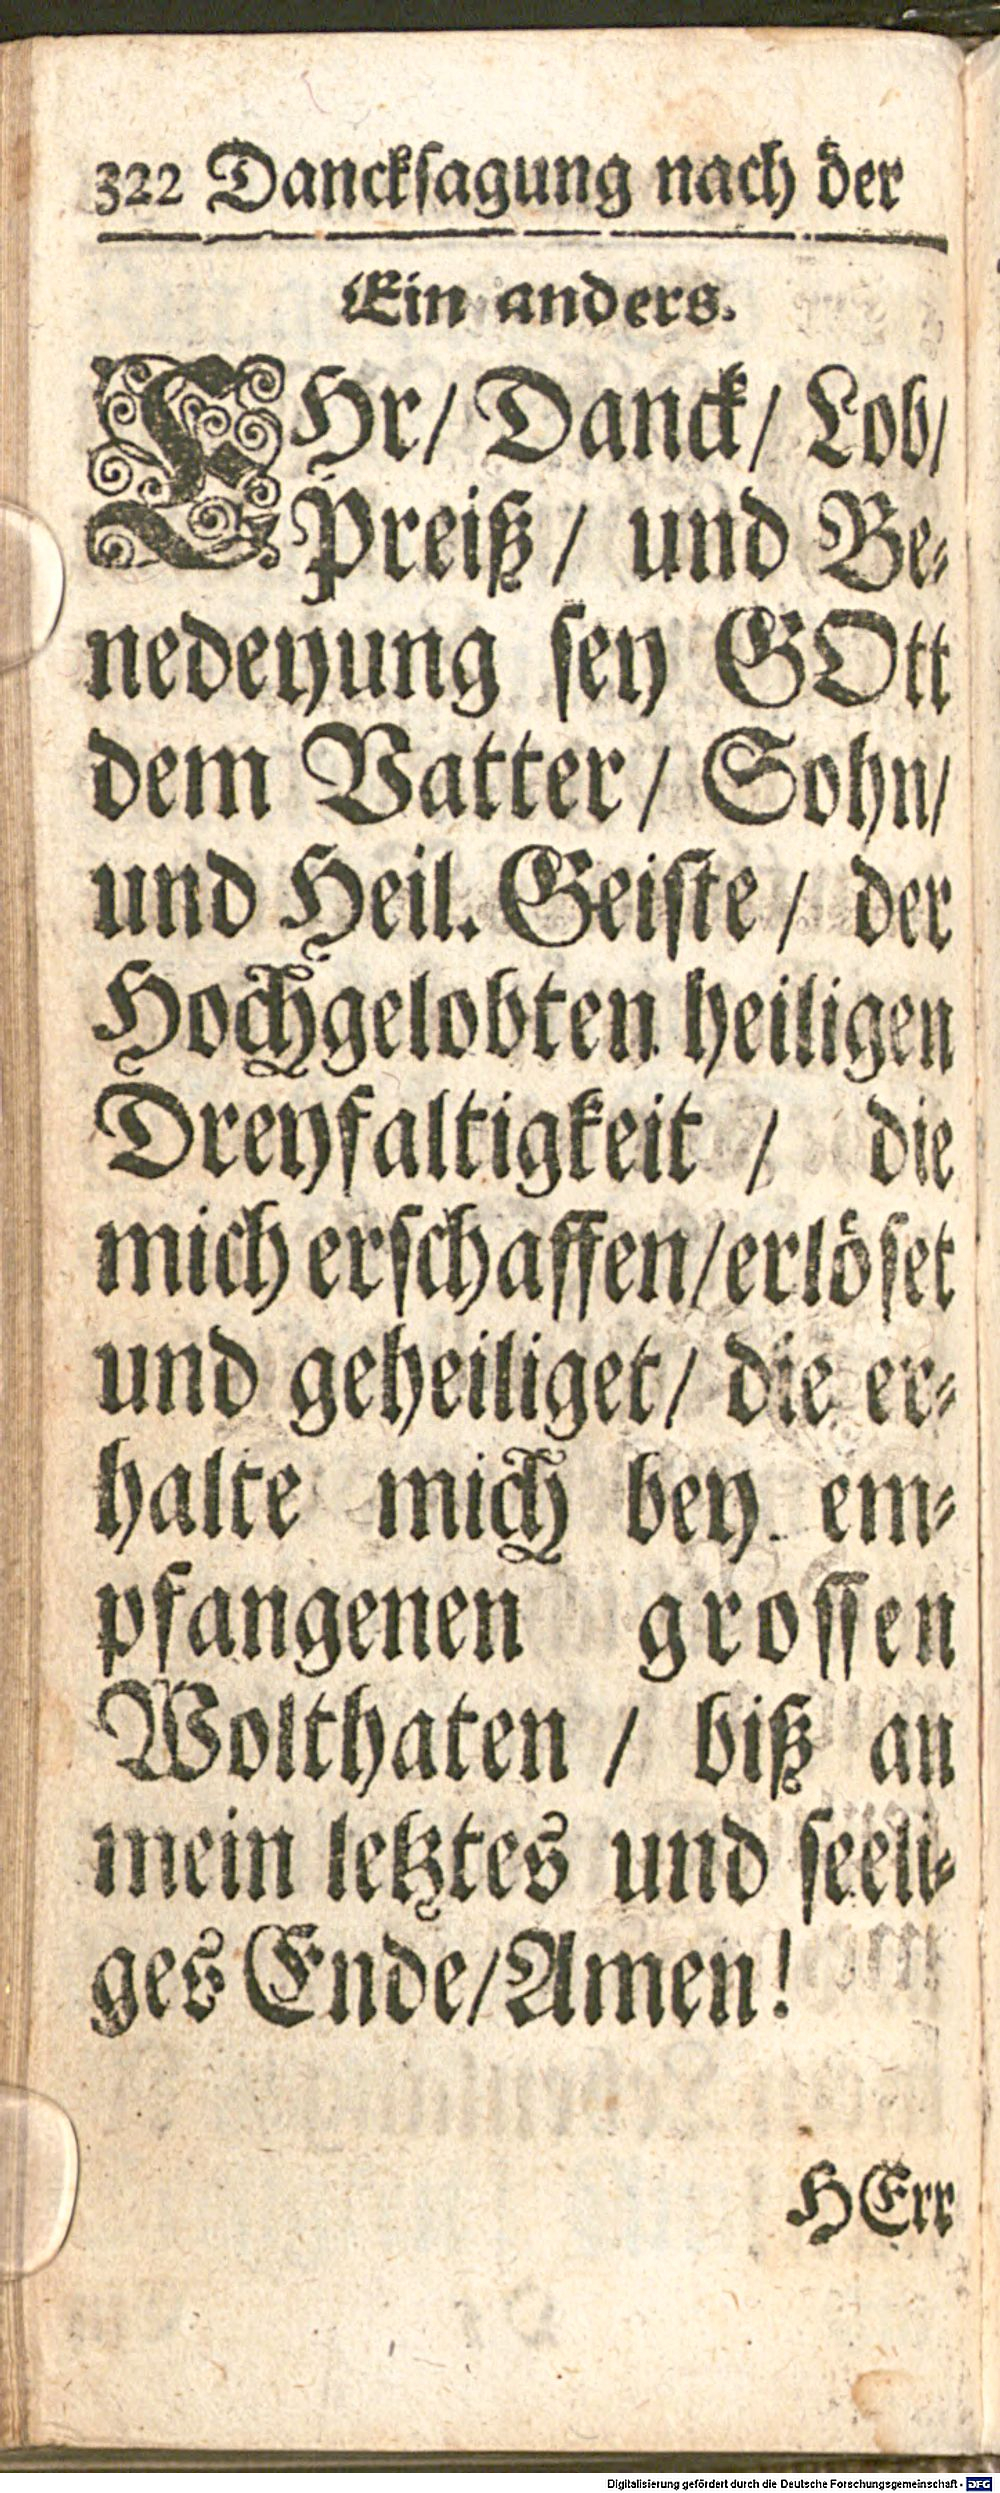 322 Danckſagung nach der
Ein anders.
EHr/ Danck/ Lob/
Preiß/ und Be⸗
nedeyung ſey GOtt
dem Vatter/ Sohn/
und Heil. Geiſte/ der
Hochgelobten heiligen
Dreyfaltigkeit / die
mich erſchaffen/erlöſet
und geheiliget/ die er⸗
halte mich bey em⸗
pfangenen groſſen
Wolthaten / biß an
mein letztes und ſeeli⸗
ges Ende/Amen!
HErr
Digitalisierung gefördert durch die Deutsche Forschungsgemeinschaft - DFG